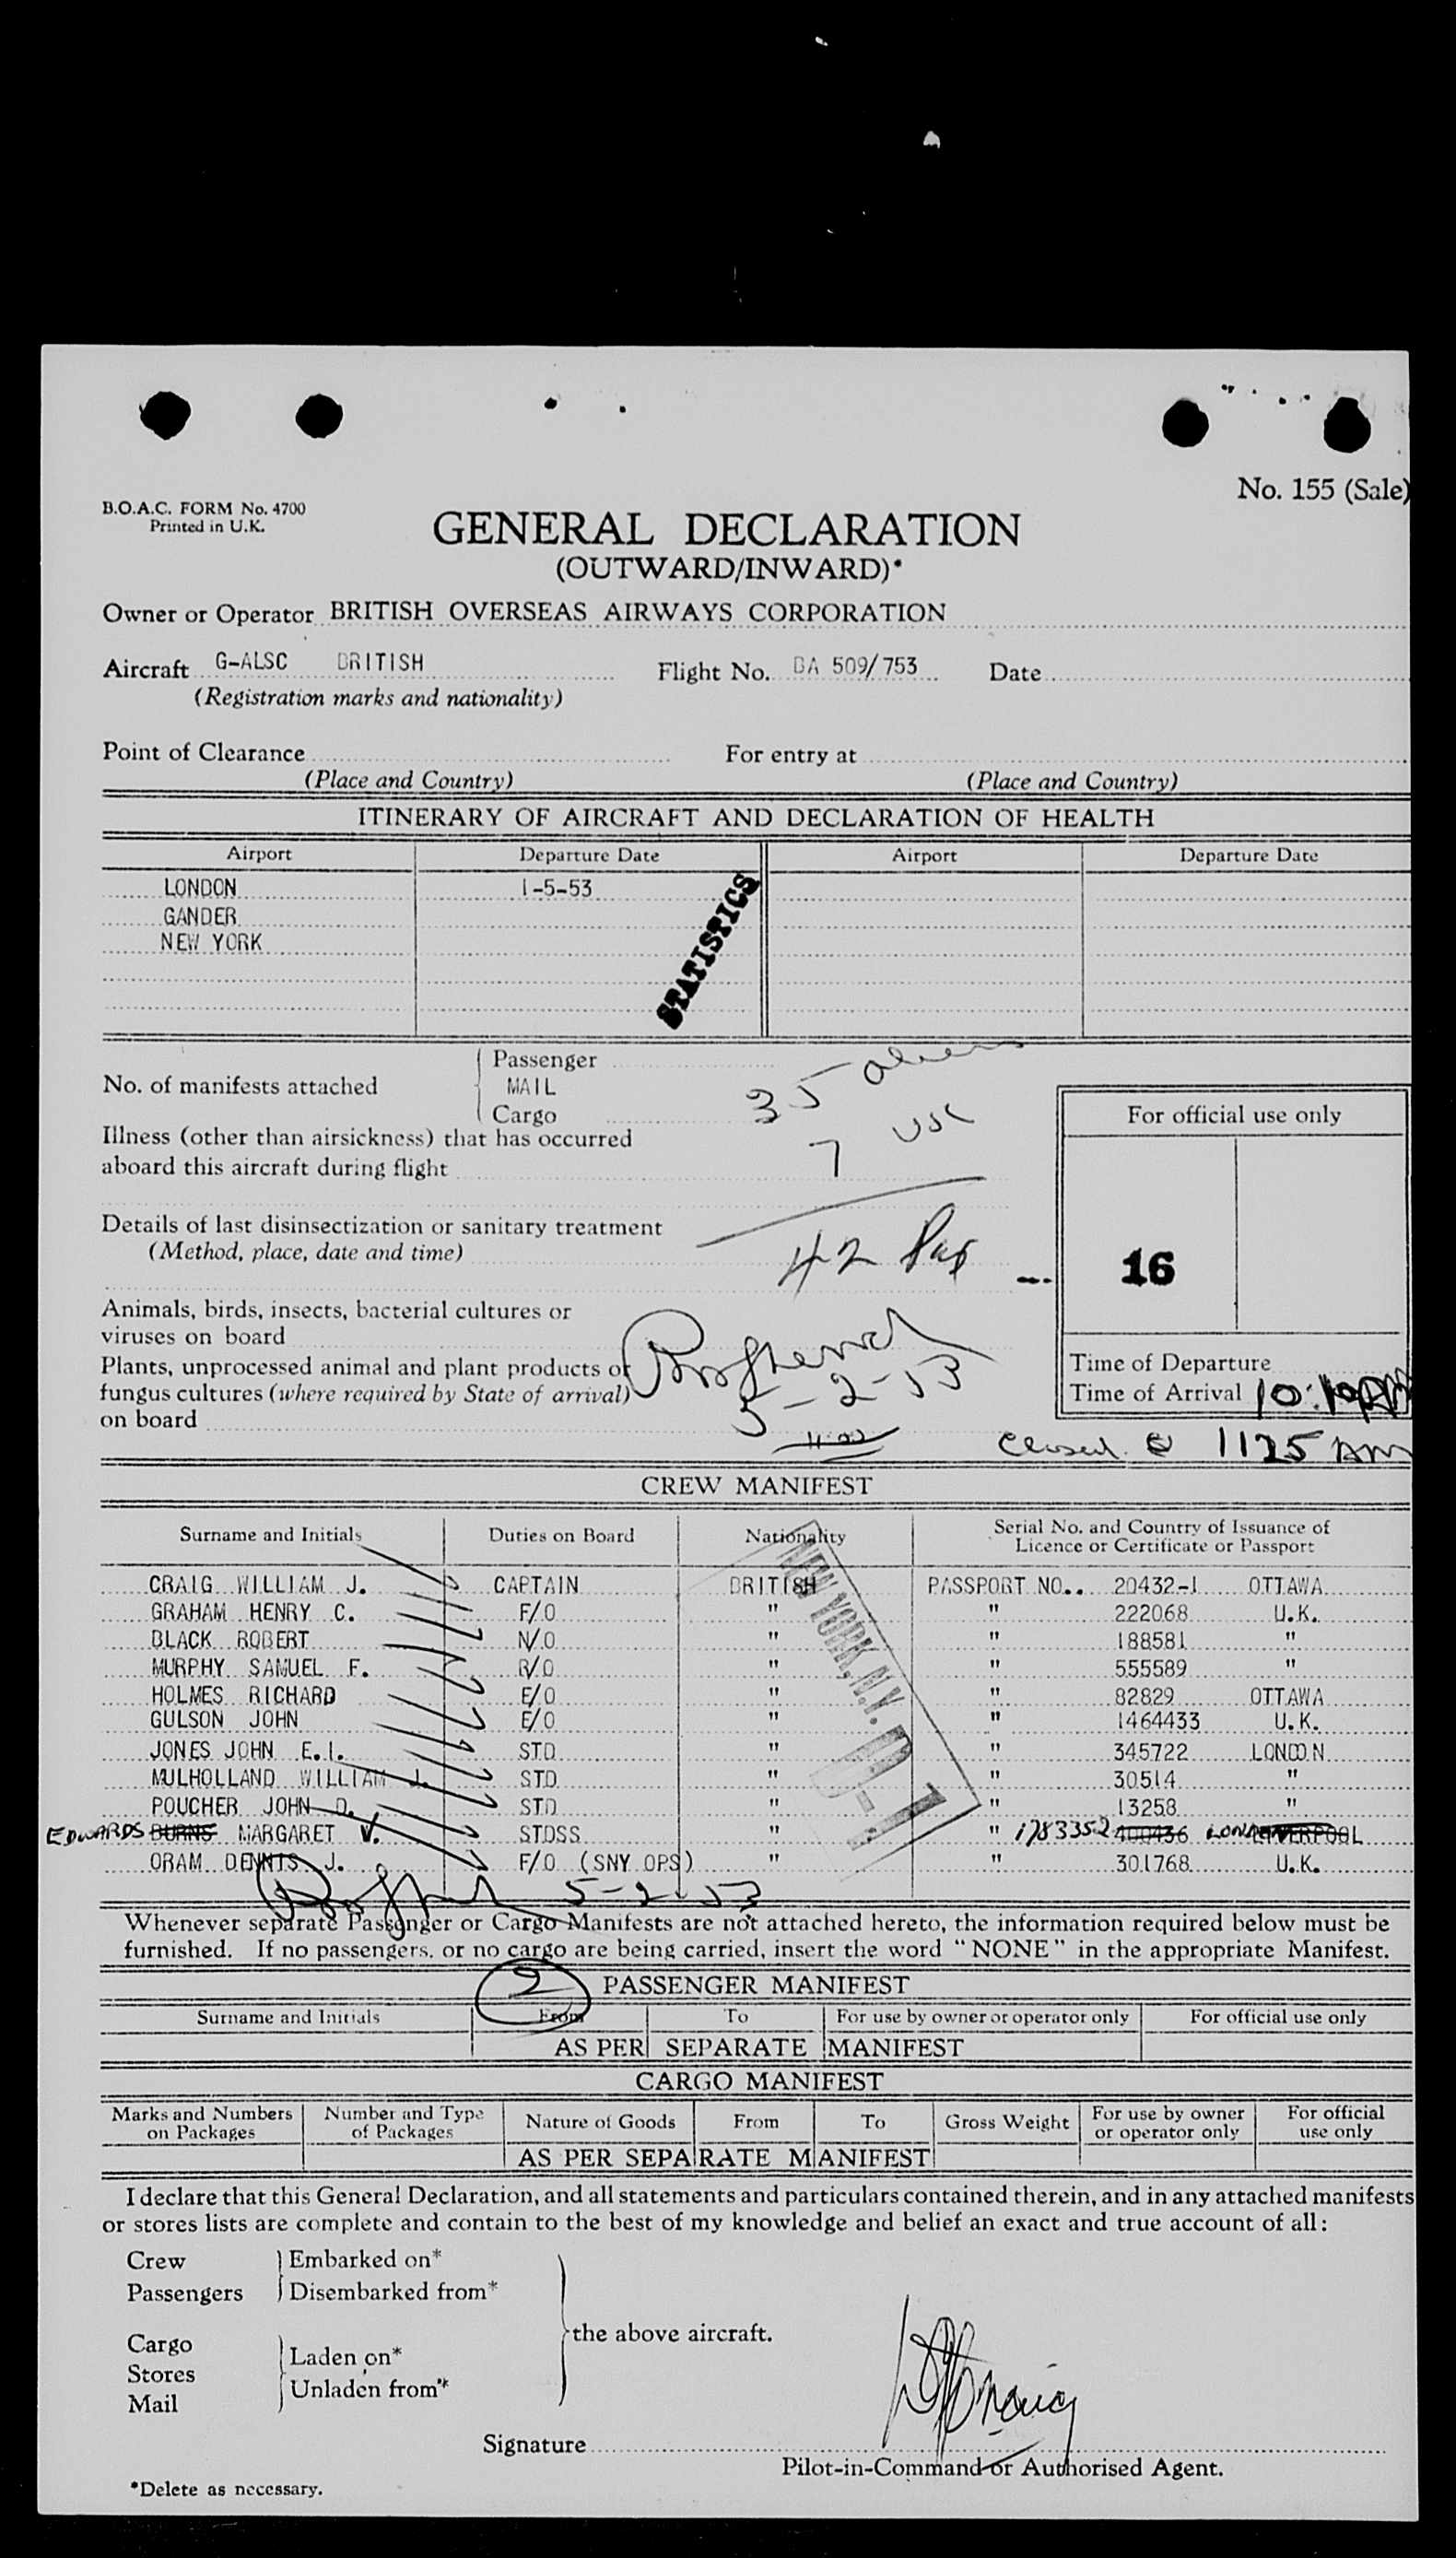 No. 155 (Sale)
B.O.A.C. FORM No. 4700
Printed in U.K.
GENERAL DECLARATION
(OUTWARD/INWARD)*
Owner or Operator BRITISH OVERSEAS AIRWAYS CORPORATION
Aircraft G-ALSC BRITISH Flight No. BA 509/753 Date
(Registration marks and nationality)
Point of Clearance For entry at
(Place and Country) (Place and Country)
ITINERARY OF AIRCRAFT AND DECLARATION OF HEALTH
Airport Departure Date Airport Departure Date
LONDON 1-5-53
GANDER
NEW YORK
STATISTICS
Passenger
No. of manifests attached MAIL
Cargo
35 aliens
7 USC
42 Pax
Illness (other than airsickness) that has occurred
aboard this aircraft during flight
Details of last disinsectization or sanitary treatment
(Method, place, date and time)
Animals, birds, insects, bacterial cultures or
viruses on board
Plants, unprocessed animal and plant products or
fungus cultures (where required by State of arrival)
on board
5-2-53
11:00
For official use only
16
Time of Departure
Time of Arrival 10:10AM
Closed @ 1125 AM
CREW MANIFEST
Surname and Initials Duties on Board Nationality Serial No. and Country of Issuance of
Licence or Certificate or Passport
CRAIG WILLIAM J. CAPTAIN BRITISH PASSPORT NO.. 20432-1 OTTAWA
GRAHAM HENRY C. F/O " " 222068 U.K.
BLACK ROBERT N/O " " 188581 "
MURPHY SAMUEL F. R/O " " 555589 "
HOLMES RICHARD E/O " " 82829 OTTAWA
GULSON JOHN E/O " " 1464433 U.K.
JONES JOHN E.I. STD " " 345722 LONDON
MULHOLLAND WILLIAM J. STD " " 30514 "
POUCHER JOHN D. STD " " 13258 "
EDWARDS BURNS MARGARET V. STDSS " " 1783352 400436 LON LIVERPOOL
ORAM DENNIS J. F/O (SNY OPS) " " 301768 U.K.
NEW YORK, N.Y.
D-1
5-2-53
Whenever separate Passenger or Cargo Manifests are not attached hereto, the information required below must be
furnished. If no passengers, or no cargo are being carried, insert the word "NONE" in the appropriate Manifest.
2
PASSENGER MANIFEST
Surname and Initials From To For use by owner or operator only For official use only
AS PER SEPARATE MANIFEST
CARGO MANIFEST
Marks and Numbers on Packages Number and Type of Packages Nature of Goods From To Gross Weight For use by owner or operator only For official use only
AS PER SEPARATE MANIFEST
I declare that this General Declaration, and all statements and particulars contained therein, and in any attached manifests
or stores lists are complete and contain to the best of my knowledge and belief an exact and true account of all:
Crew Embarked on*
Passengers Disembarked from*
the above aircraft.
Cargo
Laden on*
Stores
Unladen from*
Mail
Signature
Pilot-in-Command or Authorised Agent.
*Delete as necessary.